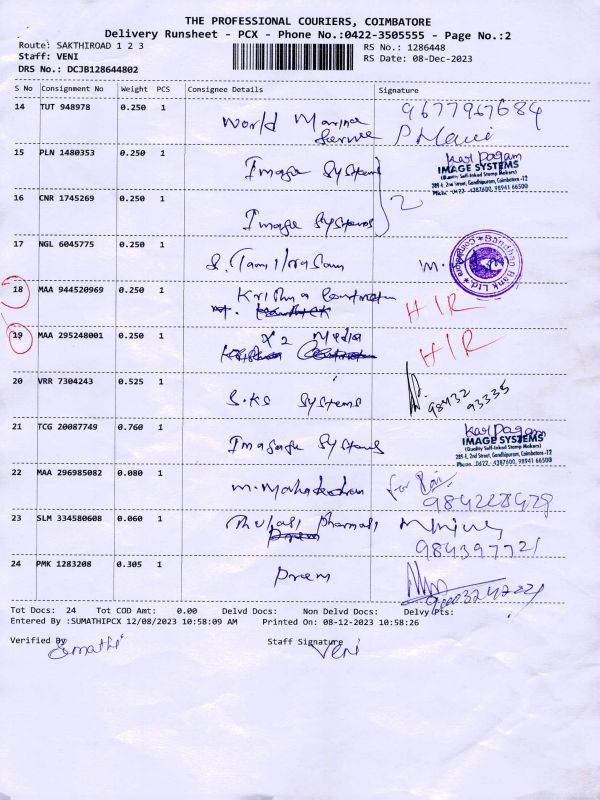 THE PROFESSIONAL COURIERS, COIMBATORE
Delivery Runsheet - PCX - Phone No.:0422-3505555 - Page No.:2
Route: SAKTHIROAD 1 2 3 RS No.: 1286448
Staff: VENI RS Date: 08-Dec-2023
DRS No.: DCJB128644802
S No Consignment No Weight PCS Consignee Details Signature
14 TUT 948978 0.250 1 World Marine 9677967684
15 PLN 1480353 0.250 1 Image Systems Kar pagam
IMAGE SYSTEMS
(Quality Self-Inked Stamp Makers)
2nd Street, Gandhipuram, Coimbatore -12
Phone: 0422 - 4387600, 98941 66500
16 CNR 1745269 0.250 1 Image Systems 2
17 NGL 6045775 0.250 1 S. Tamilnasan M. Bandhan Bank Ltd. Coimbatore
18 MAA 944520969 0.250 1 Krishna HIR
19 MAA 295248001 0.250 1 X2 Media HIR
20 VRR 7304243 0.525 1 S.KS Systems 98432
93335
21 TCG 20087749 0.760 1 Systems Kar pagam
IMAGE SYSTEMS
(Quality Self-Inked Stamp Makers)
2nd Street, Gandhipuram, Coimbatore -12
Phone: 0422 - 4387600, 98941 66500
22 MAA 296985082 0.080 1 M. Mahadevan for
984228479
23 SLM 334580608 0.060 1 Thulasi Pharmasi
984397721
24 PMK 1283208 0.305 1 Prem
Tot Docs: 24 Tot COD Amt: 0.00 Delvd Docs: Non Delvd Docs: Delvy Pts:
Entered By :SUMATHIPCX 12/08/2023 10:58:09 AM Printed On: 08-12-2023 10:58:26
Verified By Staff Signature
Sumathi Veni